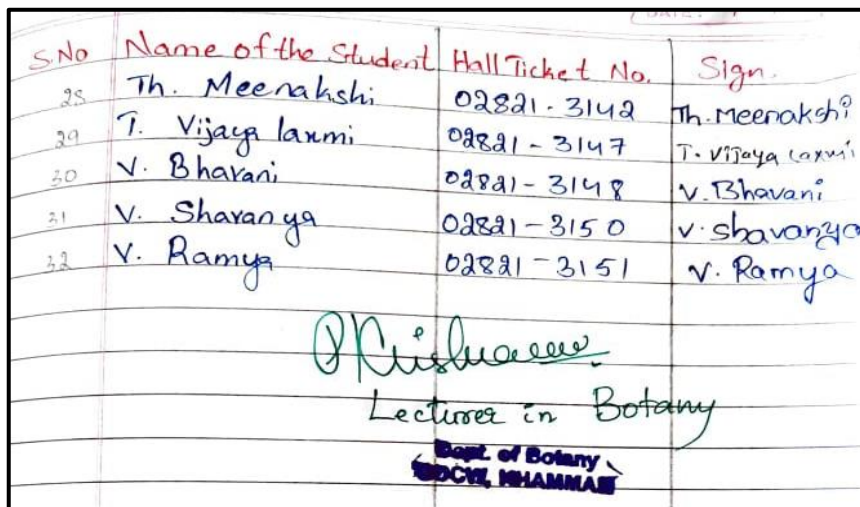 DATE:
S.No Name of the Student Hall Ticket No. Sign.
28 Th. Meenakshi 02821-3142 Th. Meenakshi
29 T. Vijaya laxmi 02821-3147 T. Vijaya Laxmi
30 V. Bhavani 02821-3148 V. Bhavani
31 V. Sharanya 02821-3150 V. Sharanya
32 V. Ramya 02821-3151 V. Ramya
Lecturer in Botany
Dept. of Botany
GDCW, KHAMMAM